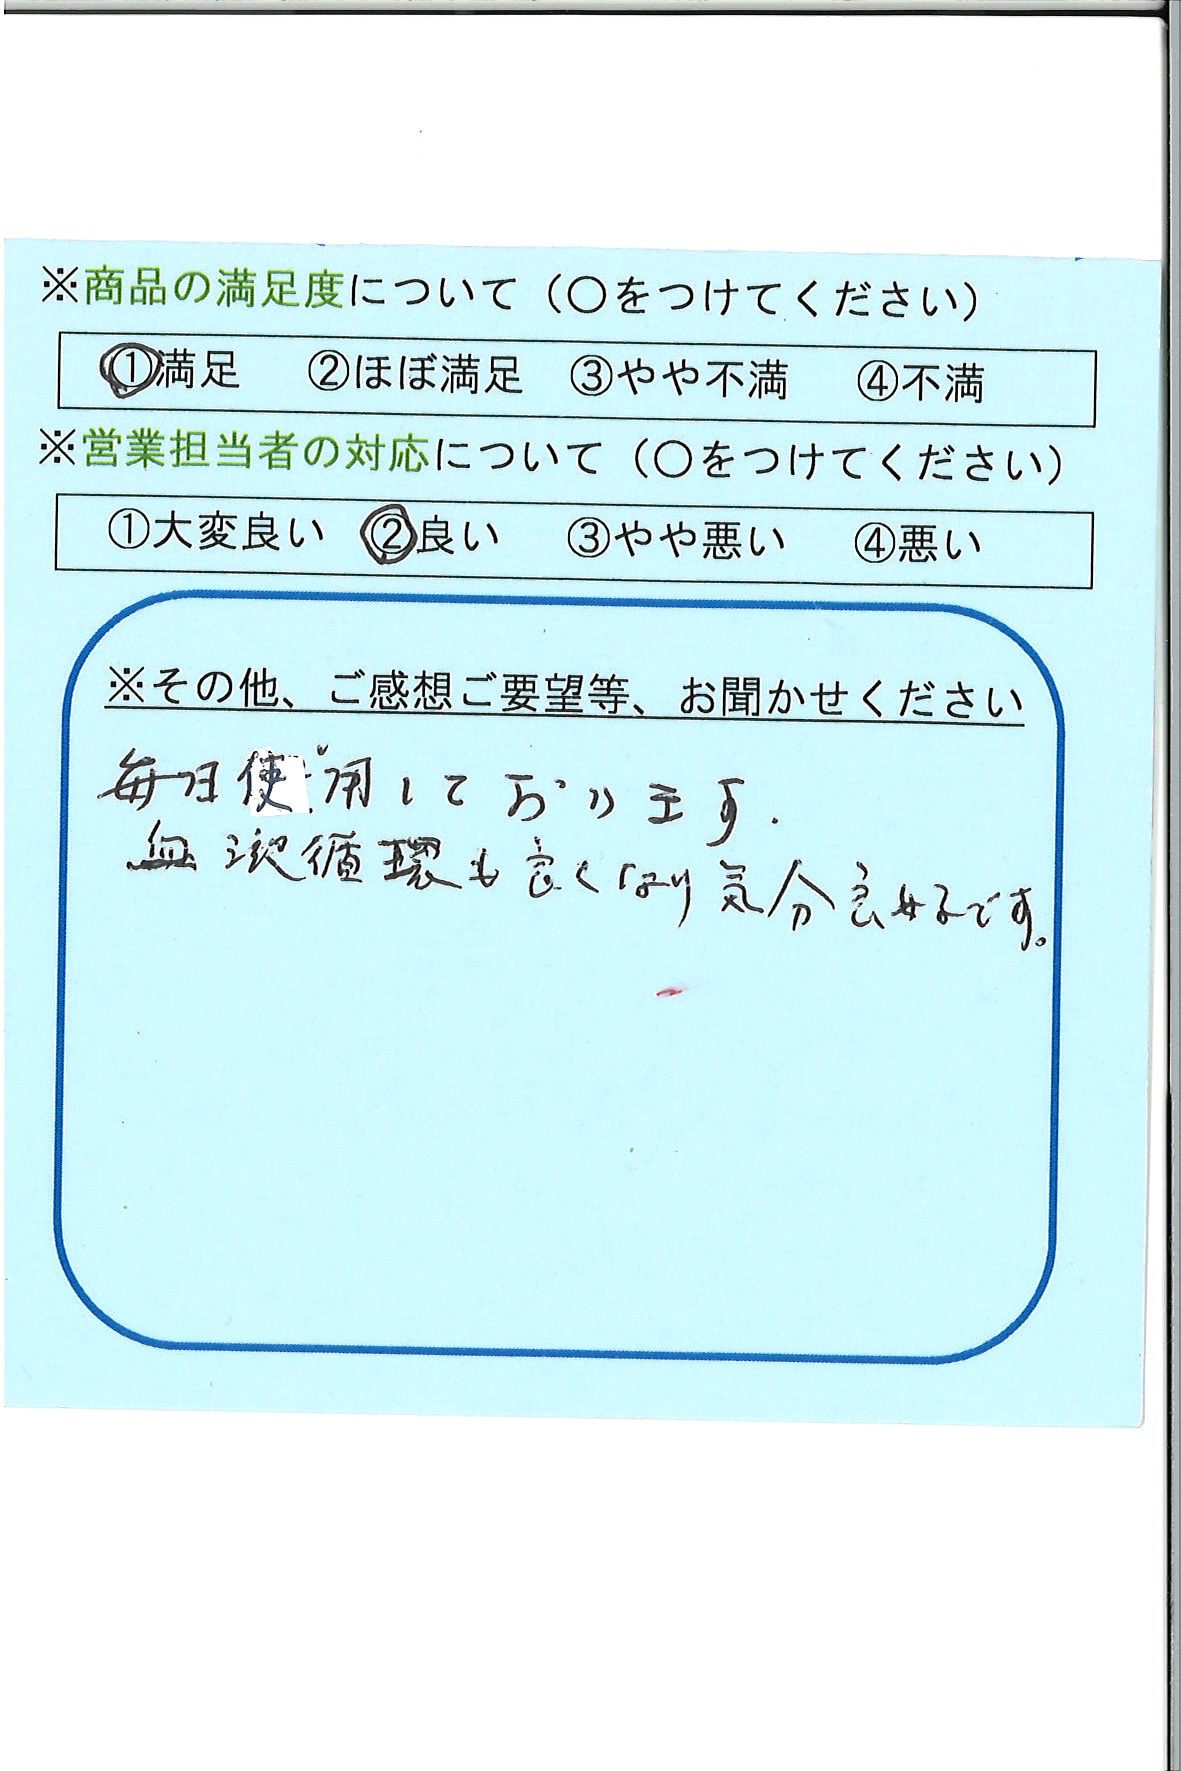 ※商品の満足度について（○をつけてください）
①満足 ②ほぼ満足 ③やや不満 ④不満
※営業担当者の対応について（○をつけてください）
①大変良い ②良い ③やや悪い ④悪い
※その他、ご感想ご要望等、お聞かせください
毎日使用しております.
血液循環も良くなり気分良好です。